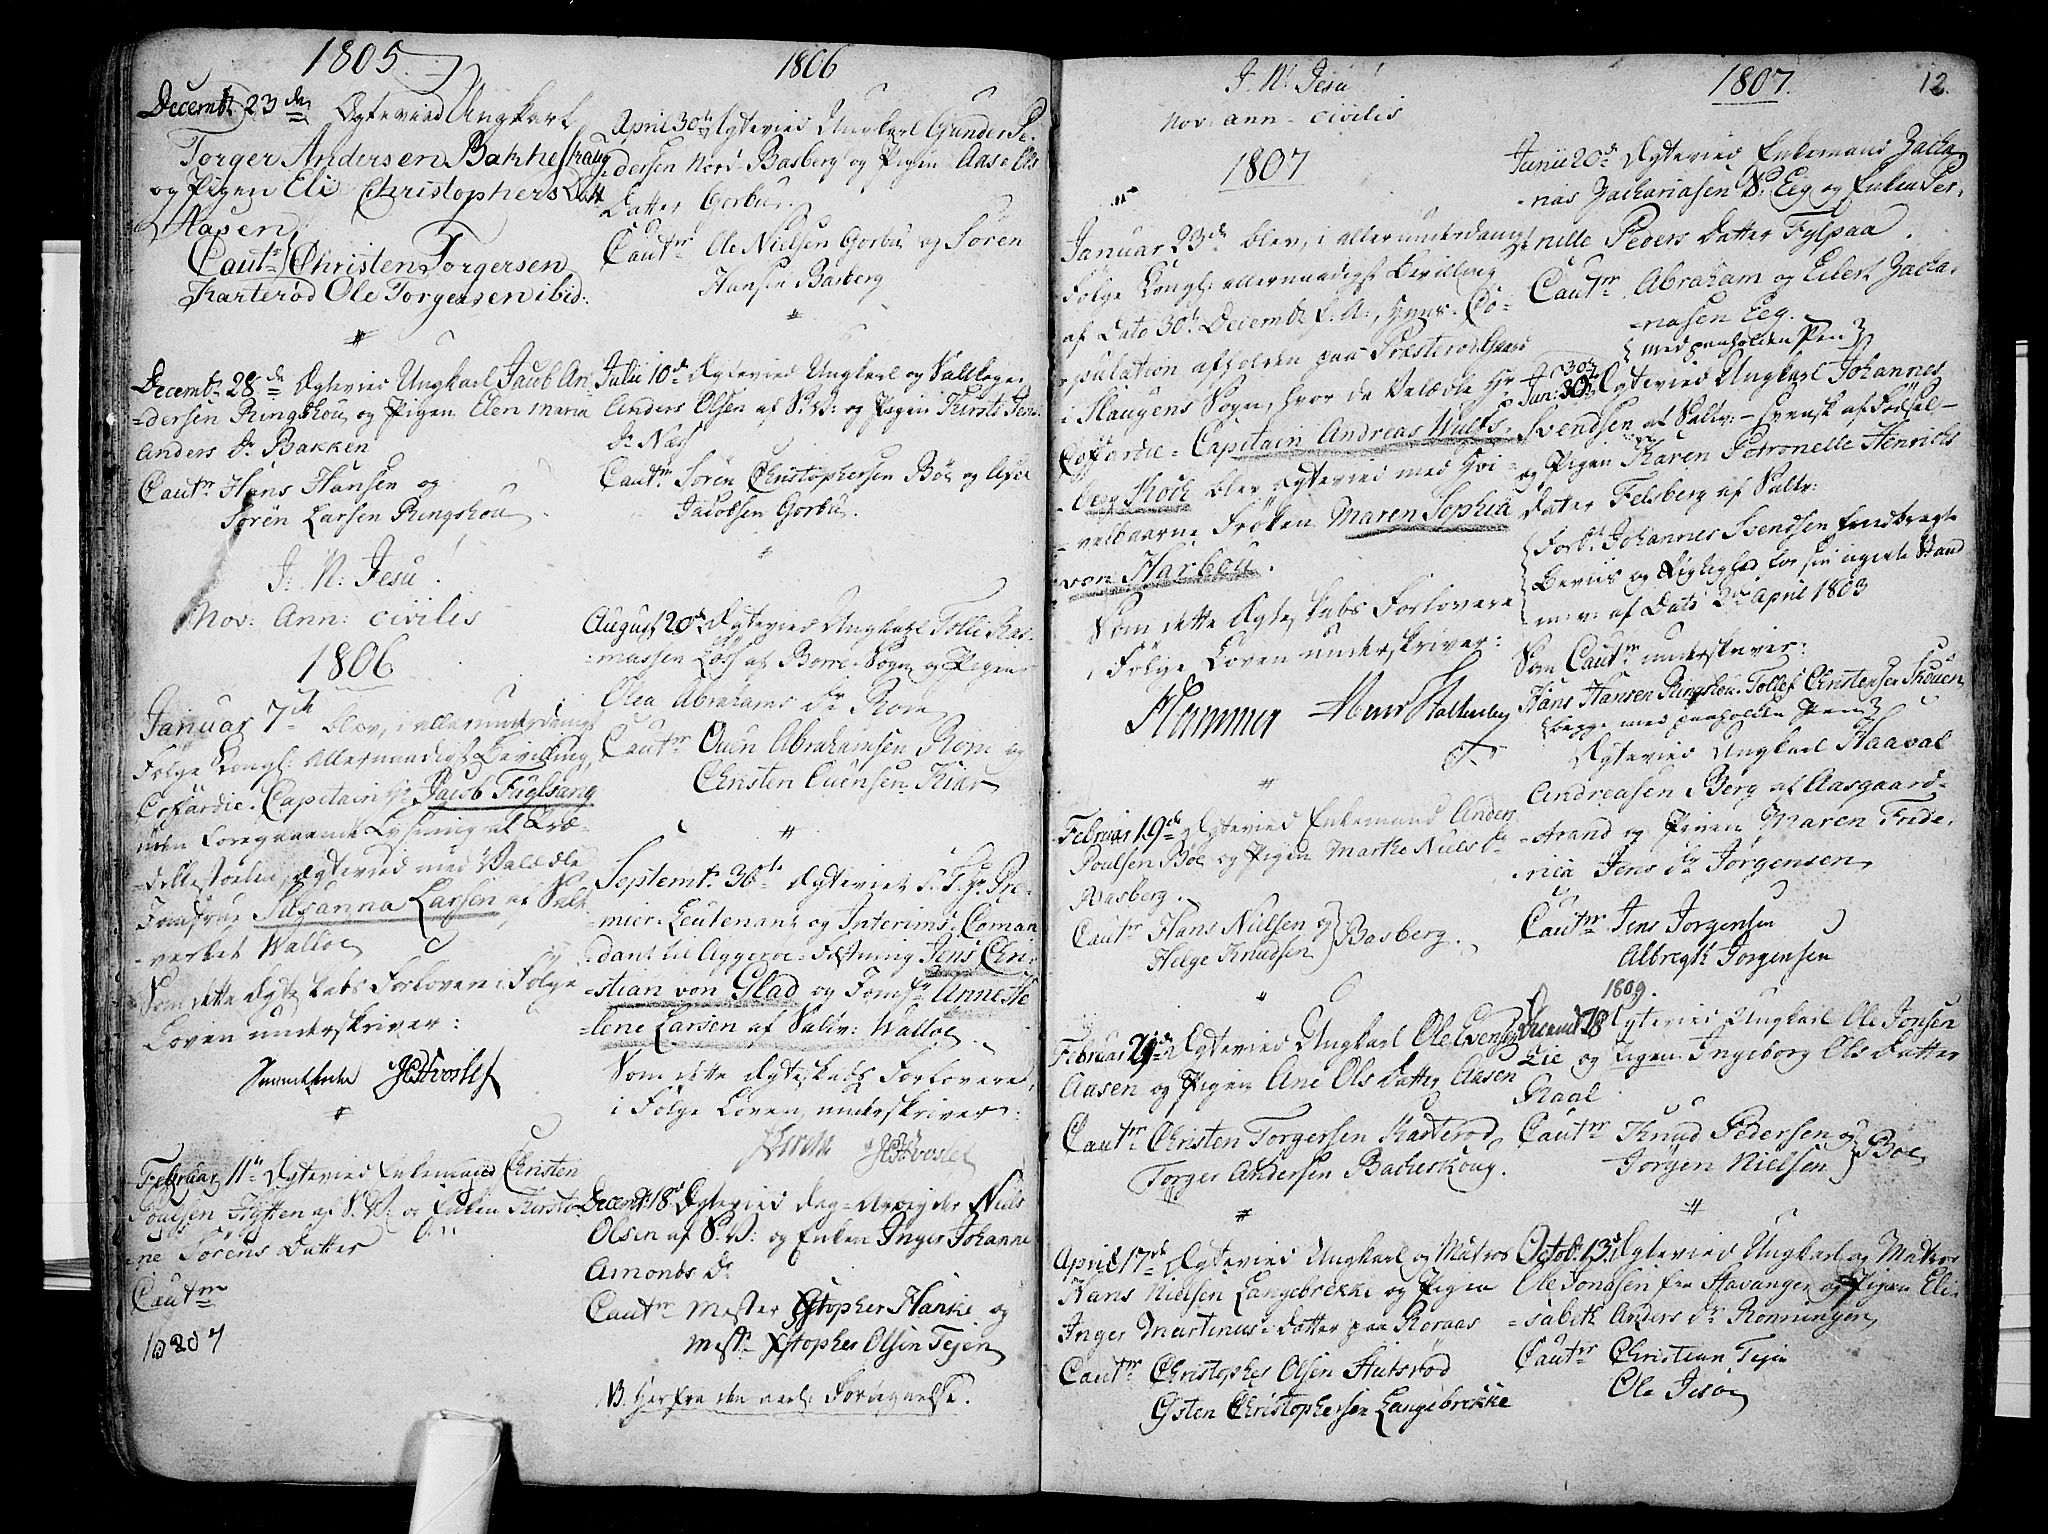 1805
Decembr 23de Ægteviet Ungkarl
Torger Andersen Bakkeskaug
og Pigen Eli Christophers Datt
Aasen
Cautr Christen Torgersen
Karterød Ole Torgersen ibid:
Decembr 28de Ægteviet Ungkarl Jacob An
=dersen Ringshou og Pigen Elen Maria
Anders Dr Bakken
Cautr Hans Hansen og
Sørên Larsen Ringshou
J: N: Jesu!
Nov: Ann: civilis
1806
Januar 7de blev, i allerunderdanigst
Følge Kongl: Allernaadigst Bevilling,
Cofardie-Capitain Hr Jacob Fuglsang
uden foregaaende Lysning af Præ-
=dikestoelen, Ægteviet med Velædle
Jomfrue Susanna Larsen af Salt
=verket Walloe
Som dette Ægteskabs Forlovere i Følge
Loven underskriver:
Februar 11te Ægteviet Enkemand Christen
Poulsen Hytten af S: V: og Enken Kirsti-
ne Sørens Datter
Cautr
1806
April 30te Ægteviet Ungkarl Gunder Pe-
dersen Nord-Basberg og Pigen Aase Ols
Datter Gorbu.
Cautr Ole Nielsen Gorbu og Sören
Hansen Basberg
Julii 10de Ægteviet Ungkarl og
Anders Olsen af S: V: og Pigen Kirsti Jens
Dr Næs
Cautr Sören Christophersen Böe og
Jacobsen Gorbu.
August 20de Ægteviet Ungkarl Tolli Ras-
=massen af Borre-Sogn og Pigen
Olea Abrahams Dr Rom
Cautr Ouen Abrahamsen Rom og
Christen Ouensen Kiær
Septembr 30te Ægteviet S. T. Hr Pre-
=mier-Leutenant og Interims Coman
=dant til Aggeroe-Fæstning Jens Chri-
=stian von Glad og Jomfr Anne He
=lene Larsen af Saltv: Walloe
Som dette Ægteskabs Forlovere,
i Følge Loven, underskriver:
Decembr 18de Ægteviet Dag-Arbeyder Niels
Olsen af S: V: og Enken Inger Johanne
Amonds Dr
Cautr Mester Xstopher Hanke og
Mestr Xstopher Olsen Tejen
NB. herfra den aarl: Fortegnelse.
J. N. Jesu!
Nov: ann- civilis
1807
Januar 23de blev, i allerunderdanigst
Følge Kongl: allernaadigst Bevilling
af Dato 30te Decembr f. A:, Huus-Co-
=pulation afholden paa Præsterødgaard
i Slaugens Sogn, hvor da Velædle Hr
Cofardie-Capitain Andreas Wulfs-
=berg Kock blev Ægteviet med Høi-
=velbaarne Frøken Maren Sophia
von Harbou.
Som dette Ægteskabs Forlovere
i Følge Loven underskriver:
Hammer
Februar 19de Ægteviet Enkemand Anders
Poulsen Böe og Pigen Marthe Niels Dr
Basberg.
Cautr Hans Nielsen og
Helge Knudsen } Basberg.
Februar 21de Ægteviet Ungkarl Ole Evensen
Aasen og Pigen Ane Ols Datter Aasen
Cautr Christen Torgersen Karterød,
Torger Andersen Bakeskoug.
April 17de Ægteviet Ungkarl og Matros
Hans Nielsen Langebrekke og Pigen
Inger Martinus-Datter paa Roraas
Cautr Christopher Olsen Slutsrød
Gsten Christophersen Langebrekke
1807.
12.
Junii 20de Ægteviet Enkemand Zacha
=rias Zachariasen S: Eeg og Enken Per-
=nille Peders Datter Fylpaa.
Cautr Abraham og Eilert Zacha-
=riasen Eeg.
{ med paaholden Pen }
30te
Jan: 30te Ægteviet Ungkarl Johannes
Svendsen af Saltv: - Svensk af Fødsel -
og Pigen Karen Petronelle Henrichs
Datter Felsberg af Saltv:
Forbt Johannes Svendsen frembragte
Beviis og Rigtighed for sin ugivte Stand
m: v: af Dato 3de April 1803
Som Cautr underskriver:
Hans Hansen Ringshou. Tollef Christensen Skouen
begge med paaholden Pen
Ægteviet Ungkarl Haaval
Andreasen Berg af Aasgaard-
=strand og Pigen Maren Fride-
=rica Jens Dr Jørgensen
Cautr Jens Jørgensen
Albregt Jorgensen
1809.
Decembr 28 Ægteviet Ungkarl Ole Jonsen
Lie og Pigen Ingeborg Ols Datter
Raal
Cautr Knud Pedersen og
Jörgen Nielsen } Böe
Octobr 13de Ægteviet Ungkarl og Matros
Ole Jonasen fra Stavanger og Pigen Eli-
=sabeth Anders Dr Rønningen
Cautr Christian Tejen
Ole Jesöe